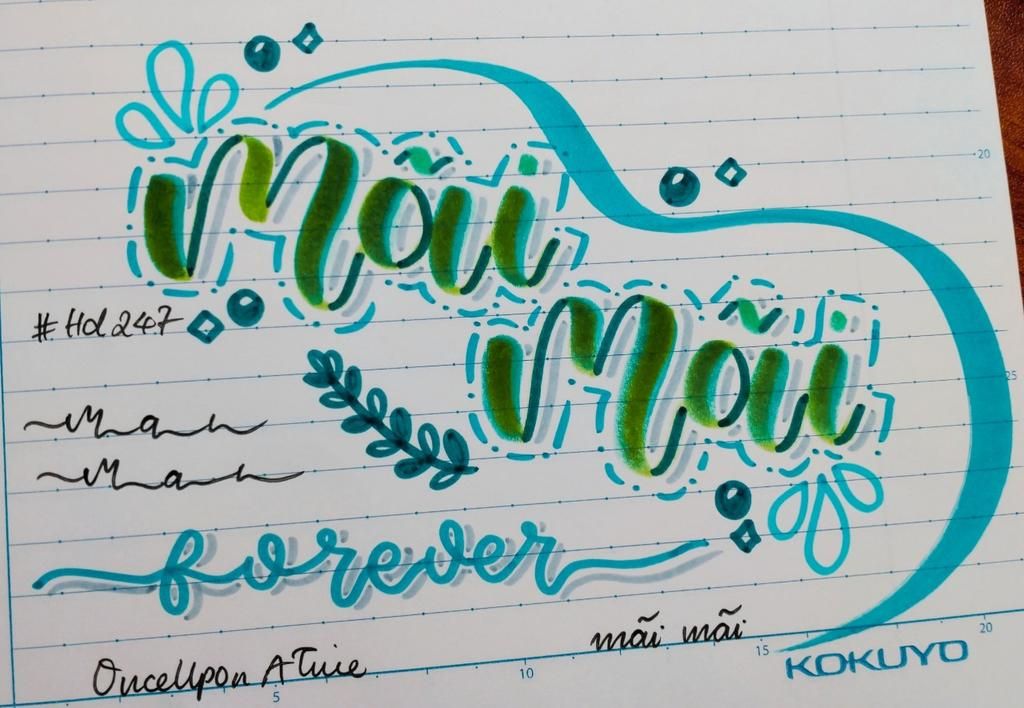 Mãi
Mãi
#Hd247
Man
Man
forever
mãi mãi
OnceUpon A Tuie
KOKUYO
20
25
5
10
15
20